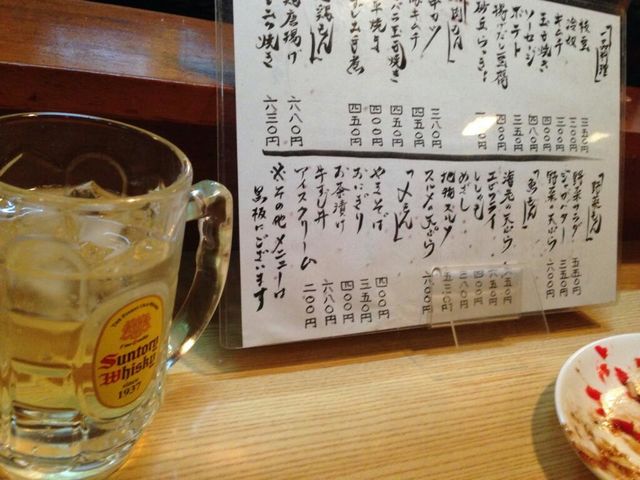 枝豆 三五〇円
冷奴 三〇〇円
キムチ 三〇〇円
玉子焼き
ソーセージ
ポテト 三五〇円
揚げだし豆腐 四〇〇円
串カツ 三八〇円
豚キムチ 四五〇円
バラ玉子焼き 四五〇円
鶏唐揚げ 六八〇円
焼き 六三〇円
「野菜もん」
野菜サラダ 五五〇円
ジャガバター 三五〇円
野菜の天ぷら 六〇〇円
「魚もん」
海老の天ぷら 六五〇円
エビフライ 六五〇円
ししゃも 四〇〇円
めざし 三八〇円
地物スルメ 五三〇円
スルメの天ぷら 六〇〇円
「〆もん」
やきそば 四〇〇円
おにぎり 三五〇円
お茶漬け 四〇〇円
牛すじ丼 六八〇円
アイスクリーム 二〇〇円
※その他メニューは
黒板にございます
Suntory
Whisky
since
1937